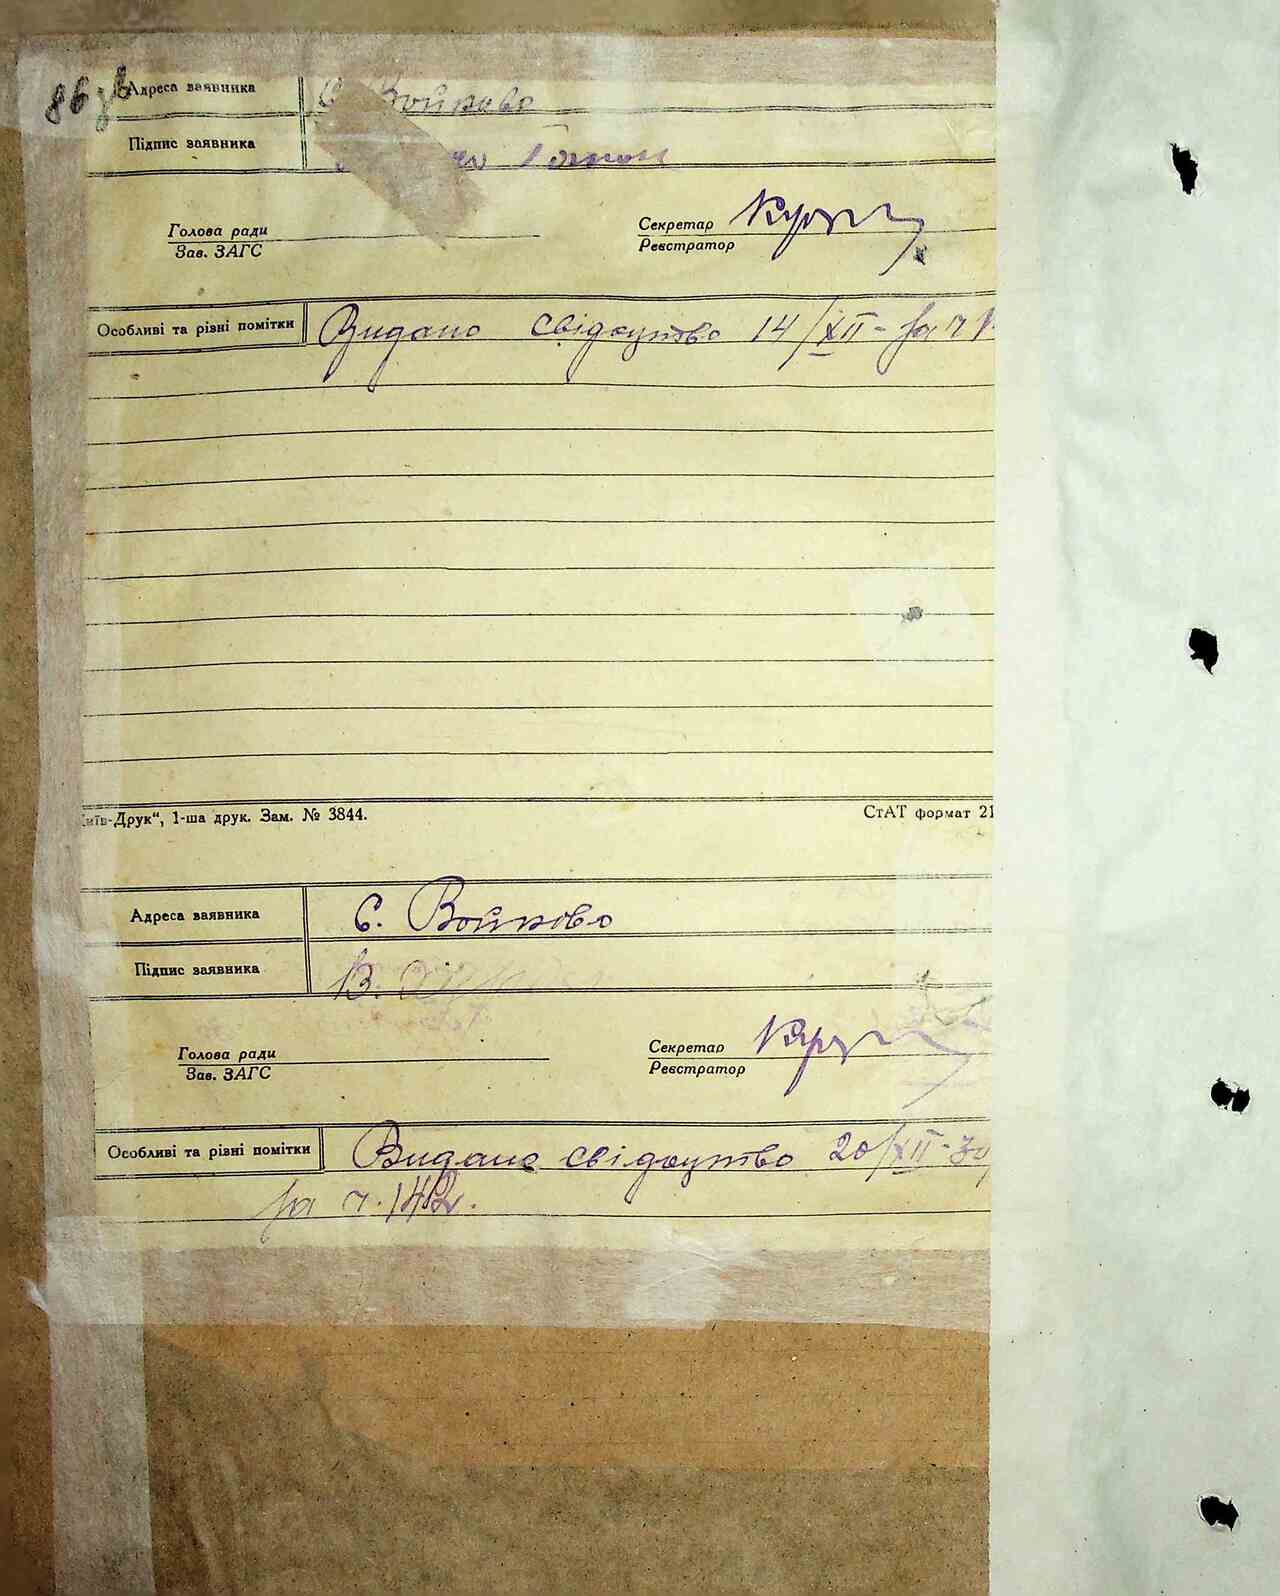 86
Адреса заявника Войково
Підпис заявника
Голова ради
Зав. ЗАГС
Секретар
Реєстратор
Особливі та різні помітки Видано свідоцтво 14/XII- за ч 1
Київ-Друк“, 1-ша друк. Зам. № 3844.
СтАТ формат 21
Адреса заявника С. Войково
Підпис заявника В.
Голова ради
Зав. ЗАГС
Секретар
Реєстратор
Особливі та різні помітки Видано свідоцтво 20/XII-
за ч. 142.